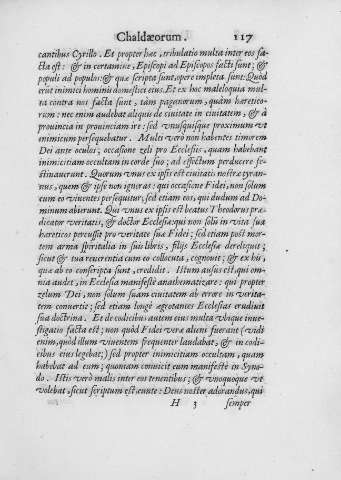 Chaldæorum. 117
cantibus Cyrillo. Et propter hæc, tribulatio multa inter eos fa-
cta est: & in certamine, Episcopi ad Episcopos facti sunt; &
populi ad populos: & quæ scripta sunt, opere impleta sunt: Quòd
erūt inimici homini domestici eius. Et ex hoc maleloquia mul-
ta contra nos facta sunt, tàm paganorum, quàm hæretico-
rum: nec enim audebat aliquis de ciuitate in ciuitatem, & à
prouincia in prouinciam ire: sed vnusquisque proximum vt
inimicum persequebatur. Multi verò non habentes timorem
Dei ante oculos; occasione zeli pro Ecclesijs, quam habebant
inimicitiam occultam in corde suo; ad effectum perducere fe-
stinauerunt. Quorum vnus ex ipsis est ciuitatis nostræ tyran-
nus, quem & ipse non ignoras: qui occasione Fidei, non solum
eum eo viuentes persequitur; sed etiam eos, qui dudum ad Do-
minum abierunt. Quo vnus ex ipsis est beatus Theodorus præ-
dicator veritatis, & doctor Ecclesiæ: qui non solū in vita sua
hæreticos percussit pro veritate suæ Fidei; sed etiam post mor-
tem arma spiritalia in suis libris, filijs Ecclesiæ dereliquit;
sicut & tua reuerentia cum eo collocuta, cognouit; & ex his,
quæ ab eo conscripta sunt, credidit. Istum ausus est, qui om-
nia audet, in Ecclesia manifestè anathematizare: qui propter
zelum Dei, non solùm suam ciuitatem ab errore in verita-
tem conuertit; sed etiam longè agentes Ecclesias erudiuit
sua doctrina. Et de codicibus autem eius multa vbique inue-
stigatio facta est; non quòd Fidei veræ alieni fuerant (vidi
enim, quòd illum viuentem frequenter laudabat, & in codi-
cibus eius legebat;) sed propter inimicitiam occultam, quam
habebat ad eum; quoniam conuicit eum manifestè in Syno-
do. Istis verò malis inter eos tenentibus; & vnoquoque vt
volebat, sicut scriptum est, eunte: Deus noster adorandus, qui
H 3 semper